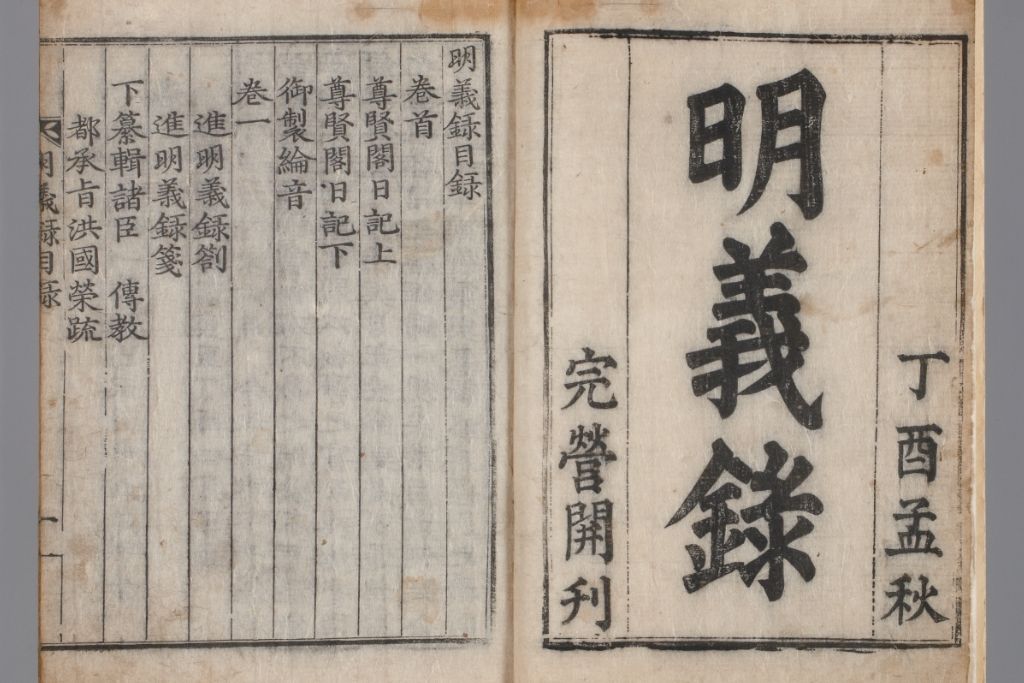 丁酉孟秋
明義錄
完營開刊
明義録目録
卷首
尊賢閣日記上
尊賢閣日記下
御製綸音
卷一
進明義録劄
進明義録箋
下纂輯諸臣 傳教
都承旨洪國榮疏
明義録目录
一